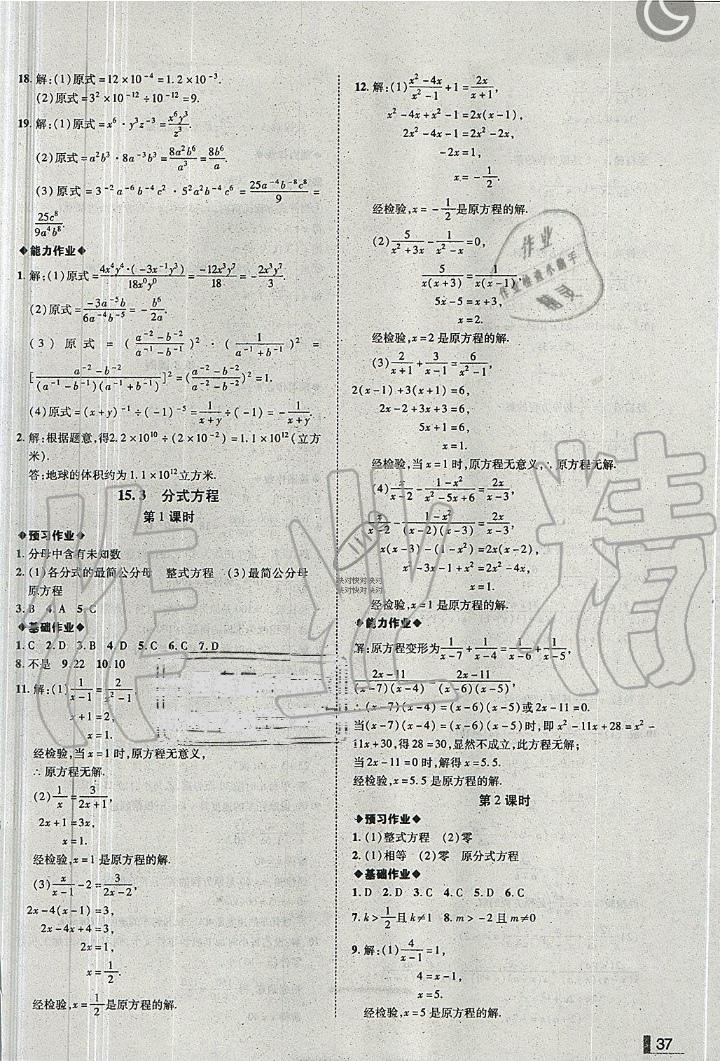 18. 解:(1)原式=12×10⁻⁴=1.2×10⁻³.
(2)原式=3²×10⁻¹²÷10⁻¹²=9.
19. 解:(1)原式=x⁶·y³z⁻³=x⁶y³/z³.
(2)原式=a²b³·8a⁻³b³=8a²b⁶/a³=8b⁶/a.
(3)原式=3⁻²a⁻⁶b⁻³c²·5²a²b⁻⁵c⁶=25a⁻⁴b⁻⁸c⁸/9=
25c⁸/9a⁴b⁸.
◆能力作业◆
1. 解:(1)原式=4x⁴y⁴·(-3x⁻¹y³)/18x⁰y⁰=-12x³y⁷/18=-2x³y⁷/3.
(2)原式=-5a⁻³b/6a⁻⁴b⁻⁵=-b⁶/a.
(3)原式=(a⁻²-b⁻²/a⁻¹-b⁻¹)²·(1/a⁻¹+b⁻¹)²=
[a⁻²-b⁻²/(a⁻¹-b⁻¹)(a⁻¹+b⁻¹)]²=(a⁻²-b⁻²/a⁻²-b⁻²)²=1.
(4)原式=(x+y)⁻¹÷(-1)⁻⁵=1/x+y÷(-1)=-1/x+y.
2. 解:根据题意,得2.2×10¹⁰÷(2×10⁻²)=1.1×10¹²(立方
米).
答:地球的体积约为1.1×10¹²立方米.
15.3 分式方程
第1课时
◆预习作业◆
1. 分母中含有未知数
2. (1)各分式的最简公分母 整式方程 (3)最简公分母
原方程
3. B 4. A 5. C
◆基础作业◆
1. C 2. D 3. B 4. D 5. C 6. C 7. D
8. 不是 9. 22 10. 10
11. 解:(1)1/x-1=2/x²-1,
x+1=2,
x=1.
经检验,当x=1时,原方程无意义,
∴原方程无解.
(2)1/x=3/2x+1,
2x+1=3x,
x=1.
经检验,x=1是原方程的解.
(3)x/x-1-2=3/2x-2,
2x-4(x-1)=3,
2x-4x+4=3,
x=1/2.
经检验,x=1/2是原方程的解.
12. 解:(1)x²-4x/x²-1+1=2x/x+1,
x²-4x+x²-1=2x(x-1),
-2x=1,
x=-1/2.
经检验,x=-1/2是原方程的解.
(2)5/x²+3x-1/x²-x=0,
5/x(x+3)=1/x(x-1),
5x-5=x+3,
x=2.
经检验,x=2是原方程的解.
(3)2/x+1+3/x-1=6/x²-1,
2(x-1)+3(x+1)=6,
2x-2+3x+3=6,
5x+1=6,
x=1.
经检验,当x=1时,原方程无意义,∴原方程无解.
(4)x/x-2-1-x²/x²-5x+6=2x/x-3,
x/x-2-1-x²/(x-2)(x-3)=2x/x-3,
x(x-3)-(1-x²)=2x(x-2),
x²-3x-1+x²=2x²-4x,
x=1.
经检验,x=1是原方程的解.
◆能力作业◆
解:原方程变形为1/x-7+1/x-4=1/x-6+1/x-5,
2x-11/(x-7)(x-4)=2x-11/(x-6)(x-5),
∴(x-7)(x-4)=(x-6)(x-5)或2x-11=0.
当(x-7)(x-4)=(x-6)(x-5)时,即x²-11x+28=x²-
11x+30,得28=30,显然不成立,此方程无解;
当2x-11=0时,解得x=5.5.
经检验,x=5.5是原方程的解.
第2课时
◆预习作业◆
1. (1)整式方程 (2)零
2. (1)相等 (2)零 原分式方程
◆基础作业◆
1. D 2. D 3. C 4. B 5. D 6. C
7. k>1/2且k≠1 8. m>-2且m≠0
9. 解:(1)4/x-1=1,
4=x-1,
x=5.
经检验,x=5是原方程的解.
37
作业精
作业
作业检查小助手
精灵
快对快对快对
快对快对快对